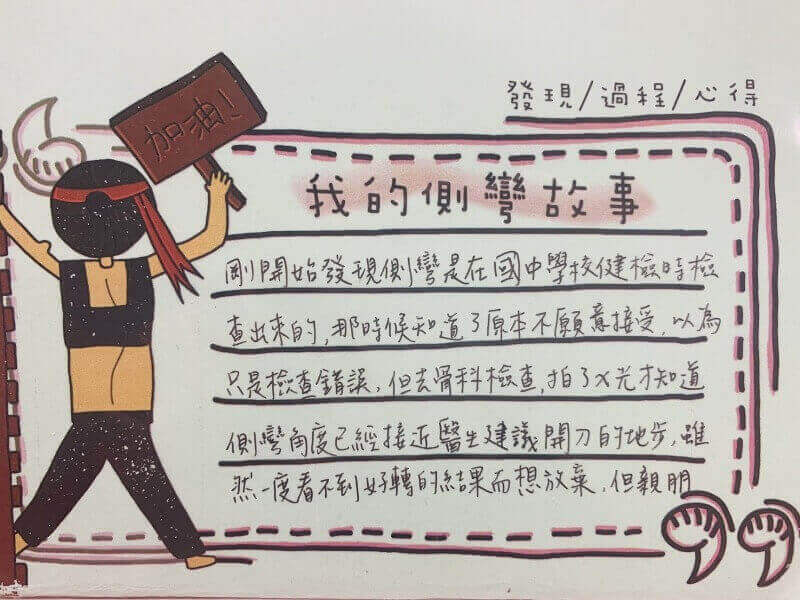 發現/過程/心得
加油!
我的側彎故事
剛開始發現側彎是在國中學校健檢時檢
查出來的,那時候知道了原本不願意接受,以為
只是檢查錯誤,但去骨科檢查,拍了X光才知道
側彎角度已經接近醫生建議開刀的地步,雖
然一度看不到好轉的結果而想放棄,但親朋